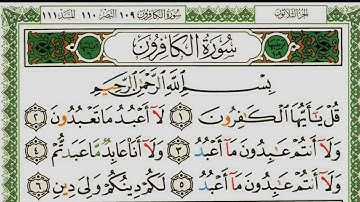 الجزء الثلاثون سورة الكافرون ١٠٩ النصر ١١٠ المسد ١١١
سُورَةُ الْكَافِرُونَ
بِسْمِ اللَّهِ الرَّحْمَٰنِ الرَّحِيمِ
قُلْ يَا أَيُّهَا الْكَفِرُونَ ١ لَا أَعْبُدُ مَا تَعْبُدُونَ ٢
وَلَا أَنتُمْ عَبِدُونَ مَا أَعْبُدُ ٣ وَلَا أَنَا عَابِدٌ مَّا عَبَدتُّمْ ٤
وَلَا أَنتُمْ عَبِدُونَ مَا أَعْبُدُ ٥ لَكُمْ دِينُكُمْ وَلِيَ دِينِ ٦